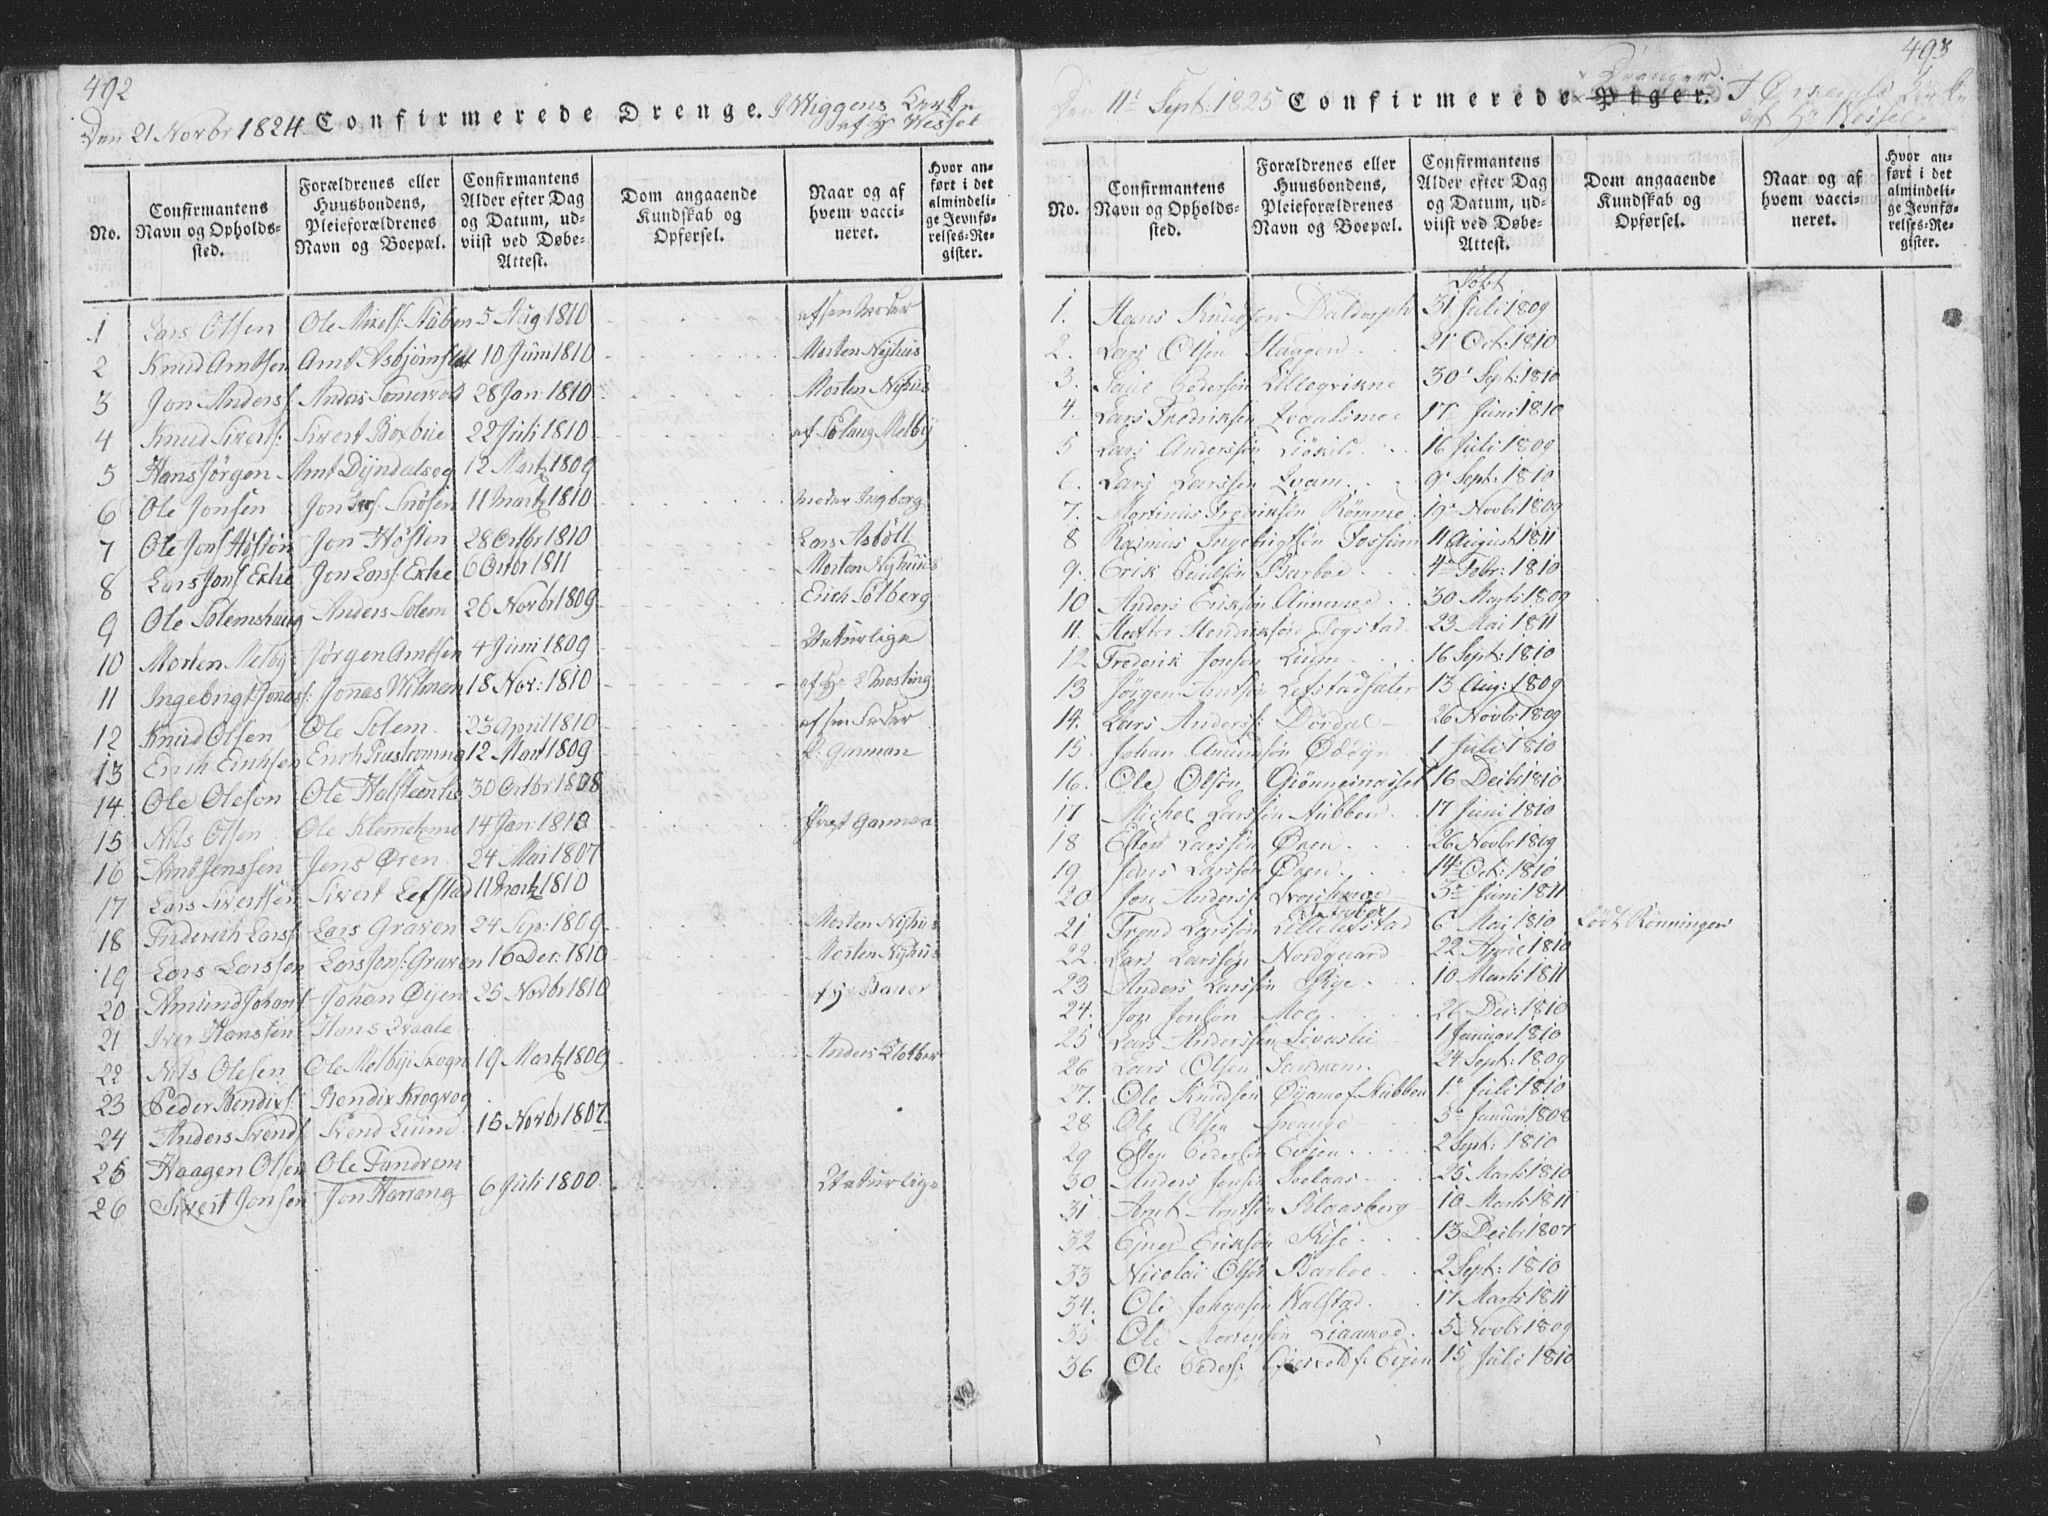 492
Den 21 Novbr 1824. Confirmerede Drenge. I Wiggens Kerke
af Hr Wessel
No.
Confirmantens Navn og Opholds-sted.
Forældrenes eller Huusbondens, Pleieforældrenes Navn og Boepæl.
Confirmantens Alder efter Dag og Datum, ud-viist ved Døbe-Attest.
Dom angaaende Kundskab og Opførsel.
Naar og af hvem vacci-neret.
Hvor an-ført i det almindeli-ge Jevnfø-relses-Re-gister.
1 Lars Olsen Ole Nixels: Stuben 5 Aug 1810 af sin Moder
2 Knud Arntsen Arnt Asbjørnslet 10 Juni 1810 Morten Nyhus
3 Jon Anders: Anders Somervold 28 Jan: 1810 Morten Nyhus
4 Knud Siverts: Sivert Boxbue 22 Juli 1810 af Solaug Melby
5 Hans Jørgen Arnt Dyndalseg 12 Martz 1809
6 Ole Jonsen Jon Snøsen 11 Martz 1810 Moder Ingeborg
7 Ole Jons: Høston Jon Høsten 28 Octbr 1810 Lars Asbøll
8 Lars Jons: Exhe Jon Lars: Exhe 6 Octbr 1811 Morten Nyhuus
9 Ole Solemshaug Anders Solem 26 Novbr 1809 Erich Solberg
10 Morten Melby Jørgen Arntsen 4 Juni 1809 Naturlige
11 Ingebrigt Jonas: Jonas Vilmem 18 Nov: 1810 af Hr L Mosting
12 Knud Olsen Ole Solem 23 April 1810 af sin Fader
13 Erik Eriksen Erich Præstromma 12 Mart 1809 P. Garman
14. Ole Oleson Ole Halsteenlie 30 Octbr 1808
15 Nils Olsen Ole Klemetzmo 14 Jan: 1810 Præst Garman
16 Arnt Jenssen Jens Øren 24 Mai 1807
17 Lars Sivertsen Sivert Lefstad 11 Martz 1810
18 Frderich Lars: Lars Graven 24 Sep: 1809 Morten Nyhus
19 Lars Larssen Lars Jens: Graven 16 Dec: 1810 Morten Nyhus
20 Amund Johans: Johan Øyen 25 Novbr 1810 af Hr Baner
21 Iver Hansten Hans Qvaale
22 Nils Olesen Ole Melbye Skogn 19 Martz 1809 Anders Klokker
23 Peder Bendix: Bendix Krogrog
24 Anders Svends: Svend Lium 15 Novbr 1807
25 Haagen Olsen Ole Sandrem
26 Sivert Jonsen Jon Harrang 6 Juli 1800. Naturlige
493
Den 11te Sept: 1825 Confirmerede Piger. Drenger. I Ørkedals Kirke
af Hr Wessel
No.
Confirmantens Navn og Opholds-sted.
Forældrenes eller Huusbondens, Pleieforældrenes Navn og Boepæl.
Confirmantens Alder efter Dag og Datum, ud-viist ved Døbe-Attest.
Dom angaaende Kundskab og Opførsel.
Naar og af hvem vacci-neret.
Hvor an-ført i det almindeli-ge Jevnfø-relses-Re-gister.
Døbt
1. Hans Knudsøn Daldorph 31 Juli 1809
2. Lars Olsøn Haagen 21 Oct: 1810
3. Pedersøn Lillegrikne 30' Sept: 1810
4. Lars Fredriksen Qvaalsmoe 17 Juni 1810
5 Lars Anderssøn Liøkili 16 Juli 1809
6. Lars Larssøn Qvam 9. Sept: 1810
7. Martinus Fredriksøn Rømme 19 Novbr 1809
8 Rasmus Ingebrigtsøn Fossum 11 August 1811
9. Erik Poulsøn Barboe 4de Febr: 1810
10 Anders Eriksøn Aunemoe 30 Marti 1809
11. Hendriksøn Togstad 23 Mai 1811
12 Frederik Jonsøn Lium 16 Sept: 1810
13 Jørgen Arntsøn Lefstadsæter 13 Aug: 1809
14. Lars Anders: Dørdal 26 Novbr 1809
15. Johan Amundsøn 1 Juli 1810
16. Ole Olsøn Giønneinæset 16 Decbr 1810
17 Michel Larssøn Hubben 17 Juni 1810
18 Esten Larssøn Øren 26 Novbr 1809
19 Jens Larssøn Øren 14 Oct: 1810
20 Jon Anders: 3. Juni 1811
21 Trond Larssøn Lillelefstad 6 Mai 1810 Født Rønningen
22. Lars Larssøn Nordgaard 22 Aprie 1810
23 Anders Larssøn Rye 10 Marti 1811
24. Jon Jonsøn Moe 26 Dec: 1810
25 Lars Anderssøn Livaslie 1 Januar 1810
26 Lars Olsøn Sandrem 24 Sept: 1809
27. Ole Knudsen Øyamo f. Stubben 1. Juli 1810
28 Ole Olsen Grange 3. Januar 1808
29 Esten Pedersøn Evjen 2 Sept: 1810
30 Anders Jonsøn Solaas 25 Marti 1810
31. Arnt Arntsøn Blaasberg 10 Marti 1811
32 Ejner Eriksøn Rise 13 Decbr 1807
33 Nicolai Olsøn Barboe 2 Sept: 1810
34. Ole Johansen Walstad 17 Marti 1811
35 Ole Mortensøn Liaamoe 5 Novbr 1809
36 Ole Peders: f: Evjen 15 Juli 1810